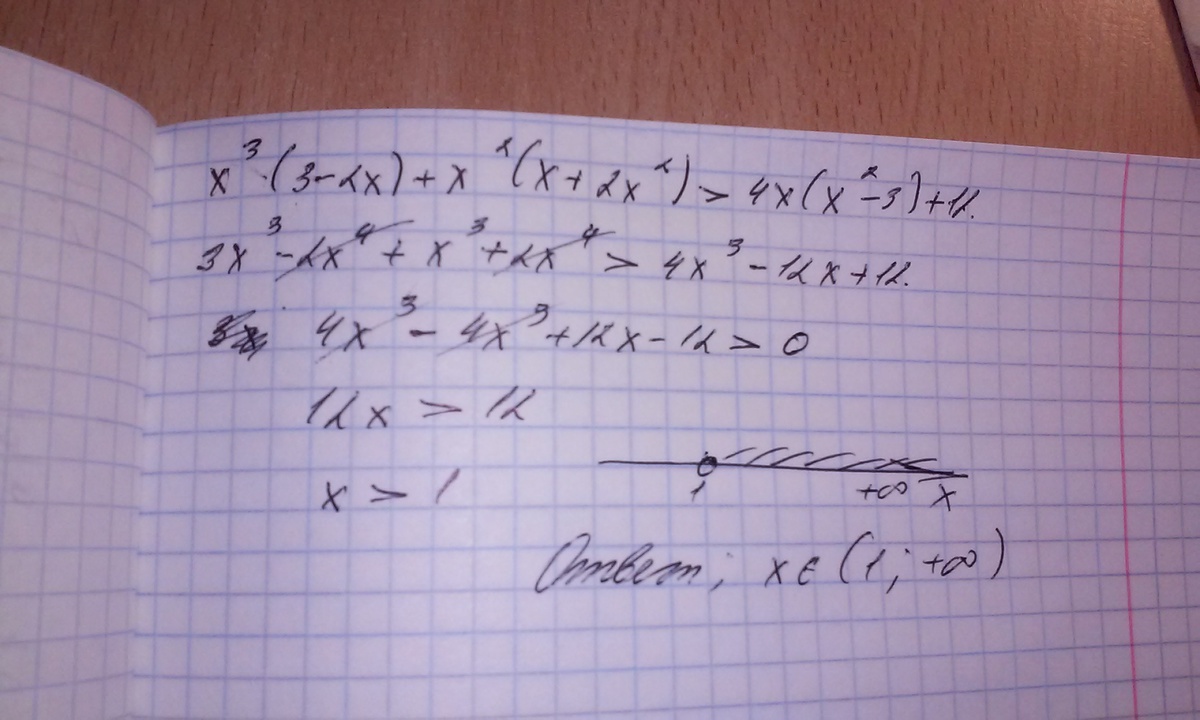 x³·(3-2x)+x²(x+2x²)>4x(x²-3)+12.
3x³-2x⁴+x³+2x⁴>4x³-12x+12.
4x³-4x³+12x-12>0
12x>12
x>1
1 +∞ x
Ответ; x∈(1;+∞)